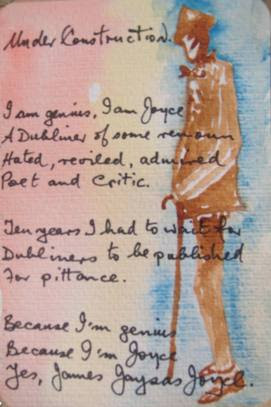 Under Construction.
I am genius, I am Joyce
A Dubliner of some renown
Hated, reviled, admired
Poet and Critic.
Ten years I had to wait for
Dubliners to be published
For pittance.
Because I'm genius
Because I'm Joyce
Yes, James Jaysas Joyce.